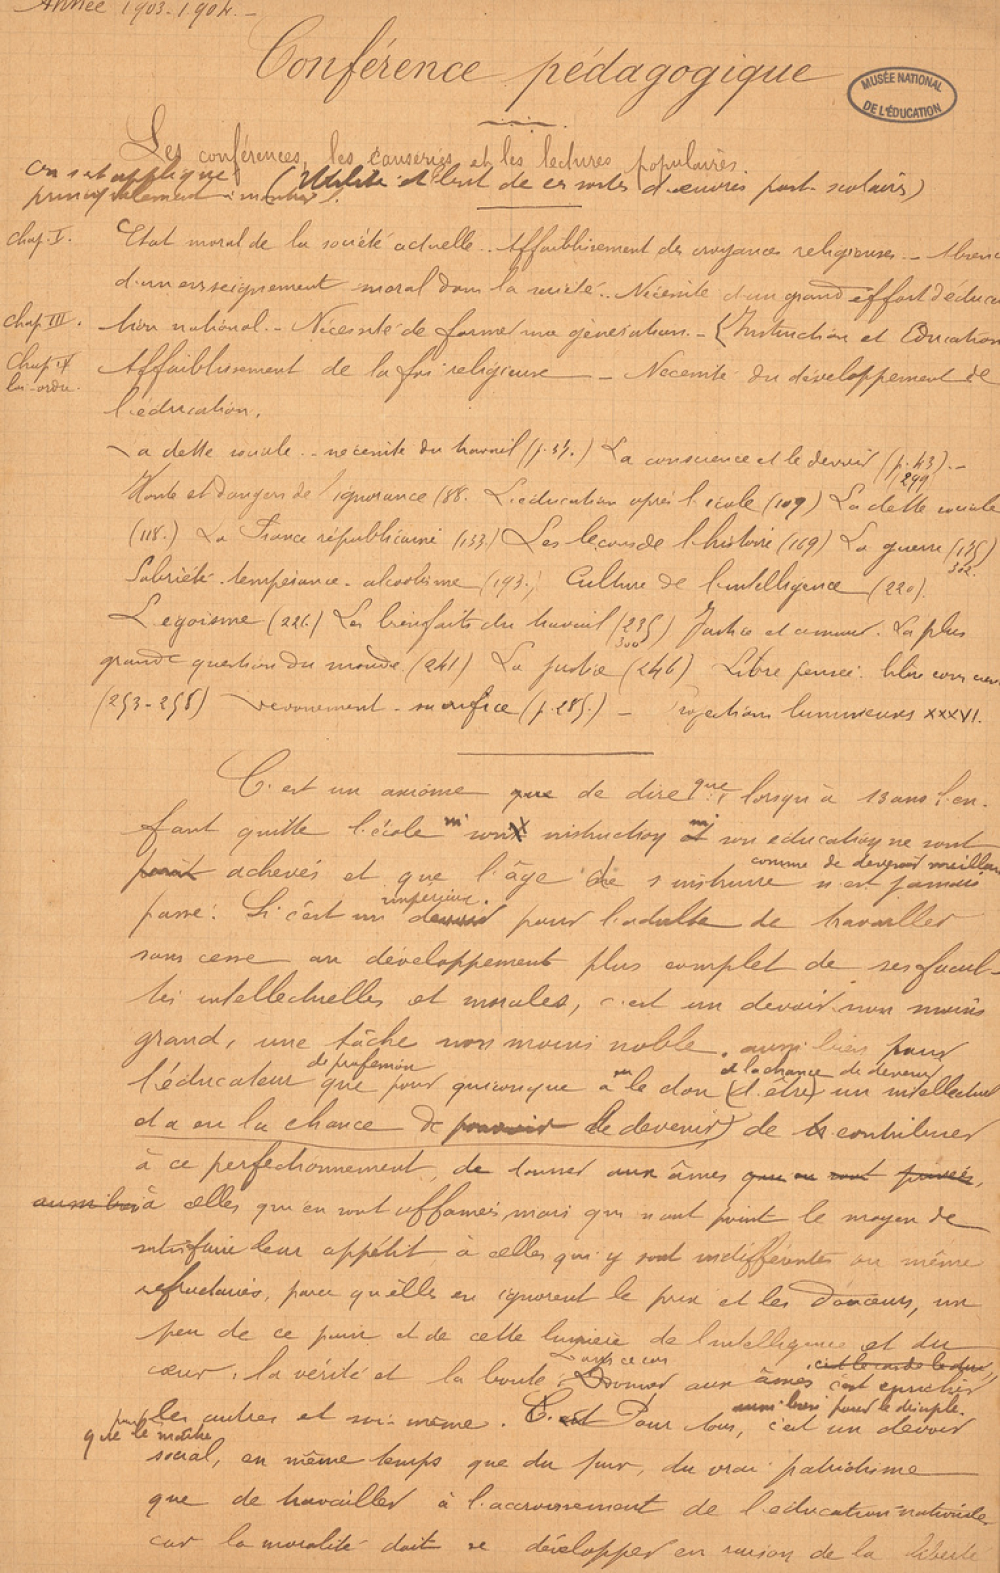 Année 1903-1904.-
Conférence pédagogique
MUSÉE NATIONAL
DE L'ÉDUCATION
Les conférences, les causeries et les lectures populaires.
On s'est appliqué (Utilité et but de ces sortes d'œuvres post-scolaires)
principalement à montrer :
Chap. I. Etat moral de la société actuelle.. Affaiblissement des croyances religieuses. - Absence
d'un enseignement moral dans la société.. Nécessité d'un grand effort d'éduca
chap III. tion national. - Nécessité de former une génération. - (Instruction et Education
Chap IX Affaiblissement de la foi religieuse - Nécessité du développement de
l'éducation.
La dette sociale.. nécessité du travail (p. 34.) La conscience et le devoir (p. 43). -
299
Honte et dangers de l'ignorance (88. L'éducation après l'école (109) La dette sociale
(118.) La France républicaine (133.) Les leçons de l'histoire (169) La guerre (175)
302.
Sobriété - tempérance - alcoolisme (193.) Culture de l'intelligence (220).
L'égoïsme (226.) Les bienfaits du travail (235) Justice et amour. La plus
300
grande question du monde. (241) La justice (246) Libre pensée. libre
(253-258) Dévouement - sacrifice (p. 285.) - Projections lumineuses XXXVI.
C'est un axiome que de dire que, lorsqu'à 13 ans l'en-
fant quitte l'école ni son instruction ni son éducation ne sont
point achevés et que l'âge de s'instruire comme de devenir meilleur n'est jamais
passé. Si c'est un devoir impérieux pour l'adulte de travailler
sans cesse au développement plus complet de ses facul-
tés intellectuelles et morales, c'est un devoir non moins
grand, une tâche non moins noble, aussi bien pour
l'éducateur de profession que pour quiconque a eu le don (d'être) et la chance de devenir un intellectuel
et a eu la chance de pouvoir le devenir) de contribuer
à ce perfectionnement, de donner aux âmes qui en sont privées,
aussi bien à celles qui en sont affamées mais qui n'ont point le moyen de
satisfaire leur appétit à celles qui y sont indifférentes ou même
réfractaires, parce qu'elles en ignorent le prix et les douceurs, un
peu de ce pain et de cette lumière de l'intelligence et du
cœur, la vérité et la bonté. Dans ce cas Donner aux âmes c'est enrichir
les autres et soi-même. C'est Pour tous, aussi bien pour le disciple c'est un devoir
que pour le maître
social, en même temps que du pur, du vrai patriotisme
que de travailler à l'accroissement de l'éducation nationale
car la moralité doit se développer en raison de la liberté